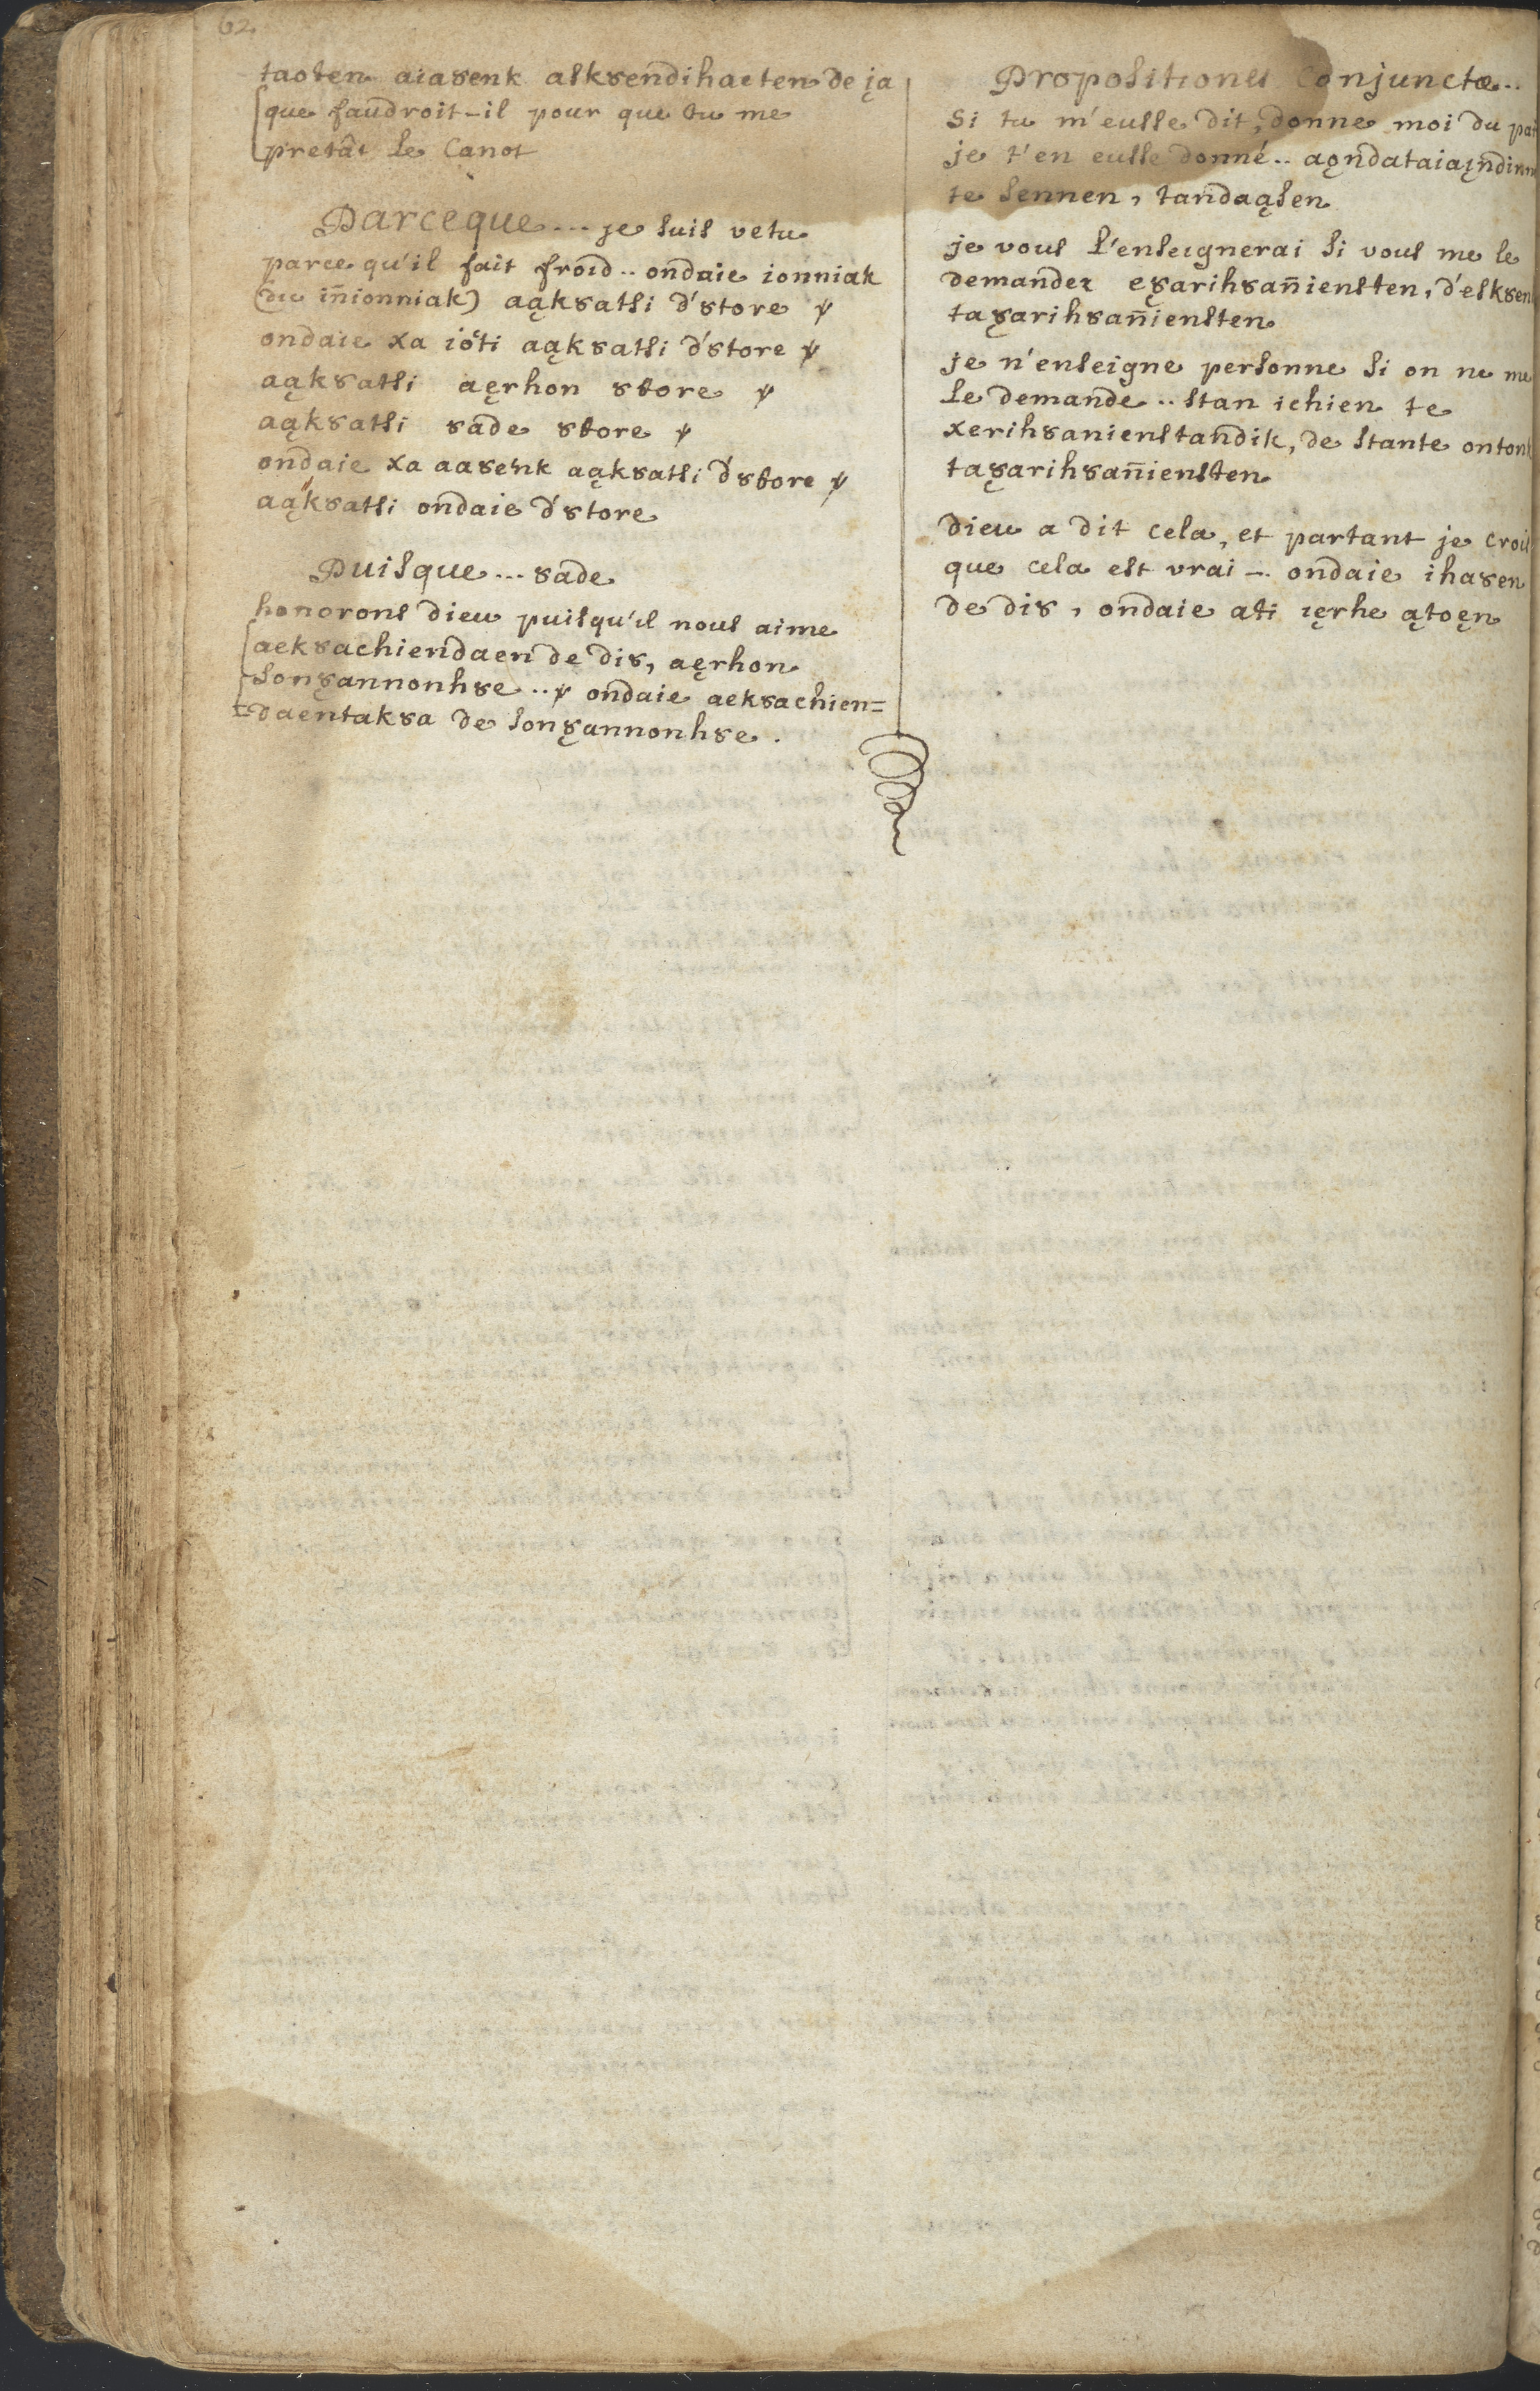 62
taoten aiaȣenk alkȣendihaeten de įa
que faudroit-il pour que tu me
pretât le Canot
Parceque... je suis vetu
parce qu'il fait froid.. ondaie ionniak
(du in̄ionniak) aąkȣatsi d'ȣtore ѱ
ondaie xa ioti aąkȣatsi d'ȣtore ѱ
aąkȣatsi aęrhon ȣtore ѱ
aąkȣatsi ȣade ȣtore ѱ
ondaie xa aaȣenk aąkȣatsi d'ȣtore ѱ
aąkȣatsi ondaie d'ȣtore
Puisque... ȣade
honorons dieu puisqu'il nous aime
aekȣachiendaen de diȣ, aęrhon
sonȣ̨annonhȣe .. ѱ ondaie aekȣachien=
=daentakȣa de sonȣ̨annonhȣe.
Propositiones Conjunctæ..
Si tu m'eusse dit, donne moi du
je t'en eusse donné..
te sennen, tandaąsen
je vous l'enseignerai si vous me le
demandez eȣ̨arihȣan̄iensten, d'eskȣen
taȣ̨arihȣan̄iensten
je n'enseigne personne si on ne me
le demande.. stan ichien te
xerihȣanienstan̄dik, de stante
taȣ̨arihȣan̄iensten
dieu a dit cela, et partant je crois
que cela est vrai -.. ondaie ihaȣen
de diȣ, ondaie ati ięrhe ątoęn